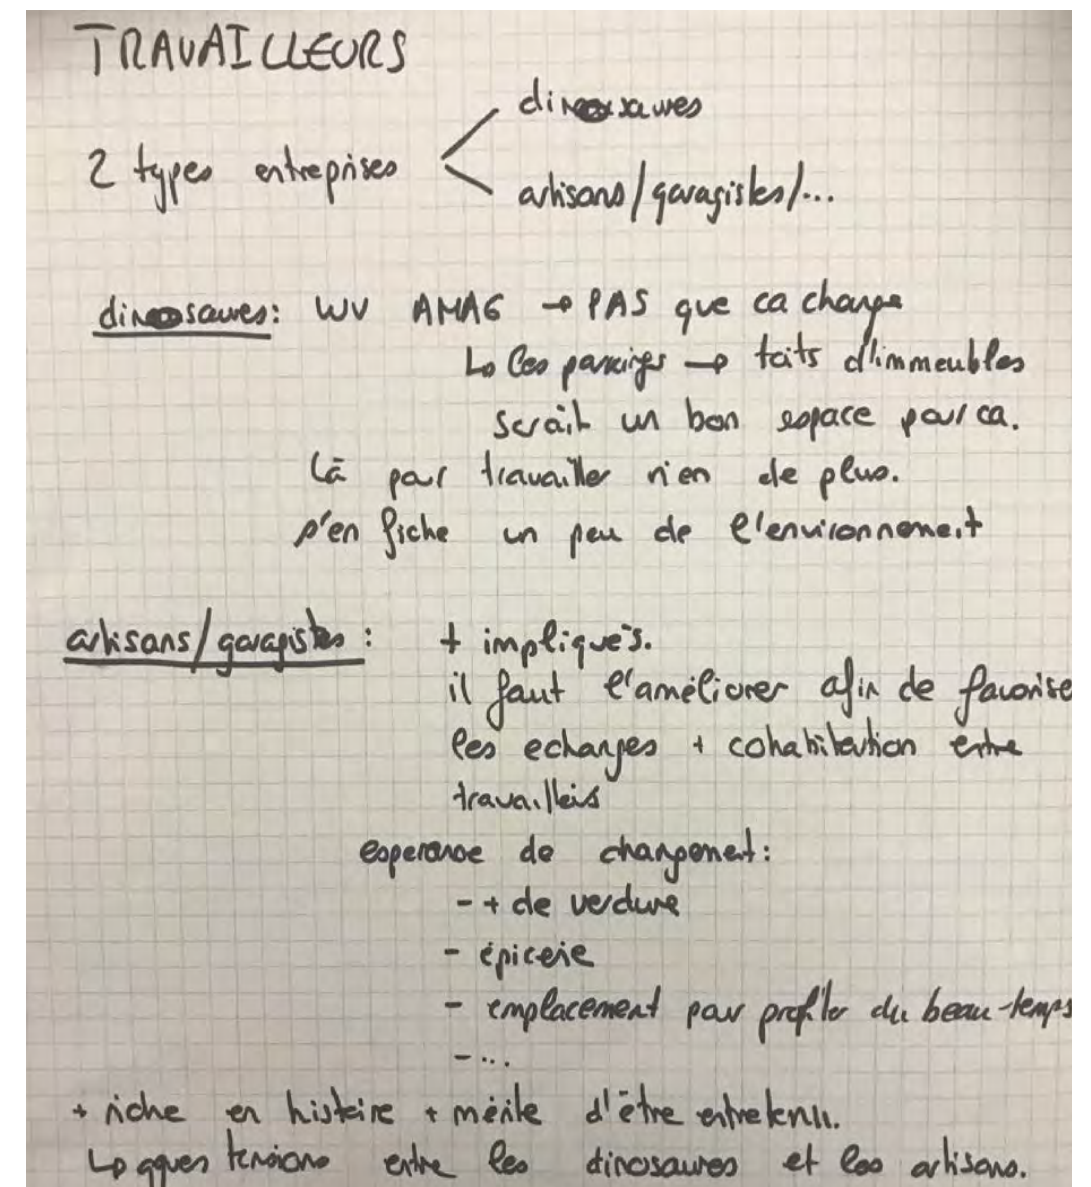 TRAVAILLEURS
dinosaures
2 types entreprises
artisans/garagistes/...
dinosaures: WV AMAG → PAS que ca change
↳ les parkings → toits d'immeubles
serait un bon espace pour ca.
là pour travailler rien de plus.
s'en fiche un peu de l'environnement
artisans/garagistes: + impliqués.
il faut l'améliorer afin de favorise
les echanges + cohabitation entre
travailleurs
esperance de changement:
- + de verdure
- épicerie
- emplacement pour profiter du beau-temps
- ...
+ riche en histoire + mérite d'être entretenu.
↳ qques tensions entre les dinosaures et les artisans.